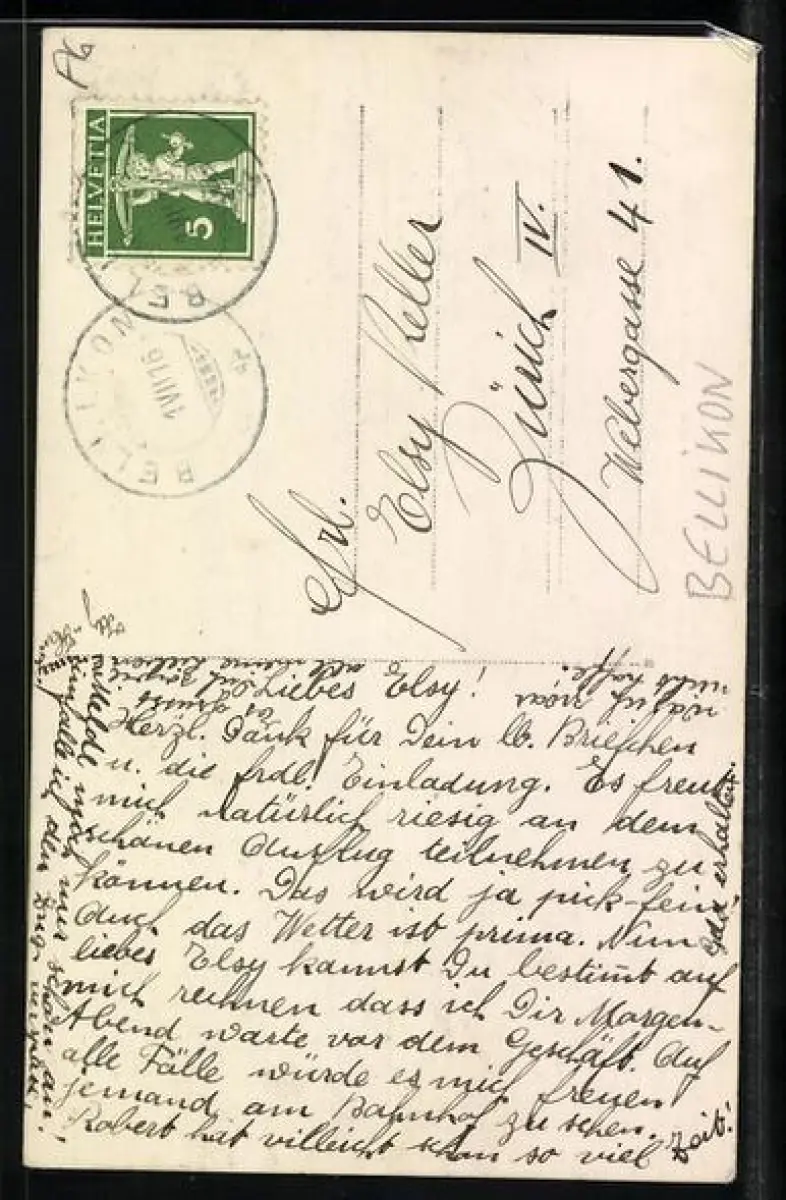 HELVETIA
5
BELLIKON
1 VII 16
BEL
Frl.
Elsy Keller
Zürich IV.
Webergasse 41.
BELLIKON
Liebes Elsy!
Herzl. Dank für Dein lb. Briefchen
u. die frdl. Einladung. Es freut
mich natürlich riesig an dem
schönen Ausflug teilnehmen zu
können. Das wird ja pick-fein!
Auch das Wetter ist prima. Nun
liebes Elsy kannst Du bestimt auf
mich rechnen dass ich Dir Morgen-
Abend warte vor dem Geschäft. Auf
alle Fälle würde es mich freuen
jemand am Bahnhof zu sehen.
Robert hat villeicht schon so viel
Zeit!
erhalten.
melde mich nur schon an!
falls ich den Zug verpass!
was ich
nicht hoffe.